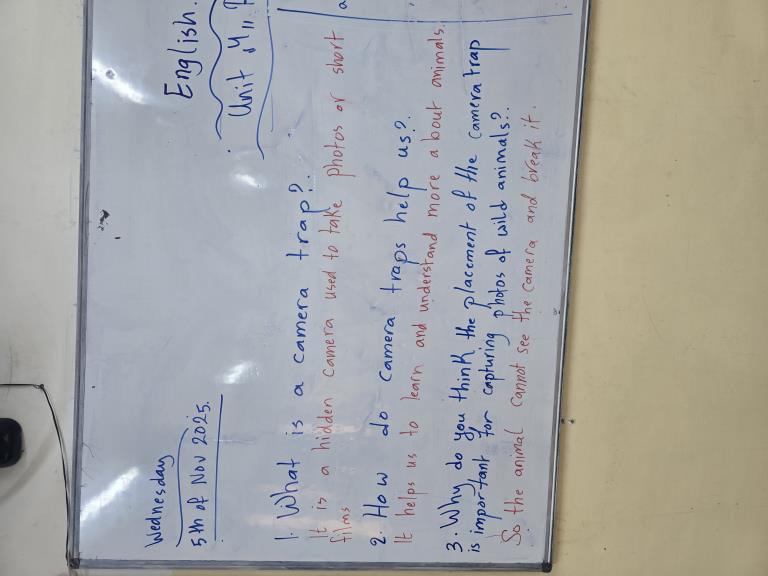 Wednesday
5th of Nov 2025.
English.
Unit 4
1. What is a camera trap?
It is a hidden camera used to take photos or short
films
2. How do camera traps help us?
It helps us to learn and understand more about animals.
3. Why do you think the placement of the camera trap
is important for capturing photos of wild animals?
So the animal cannot see the camera and break it.